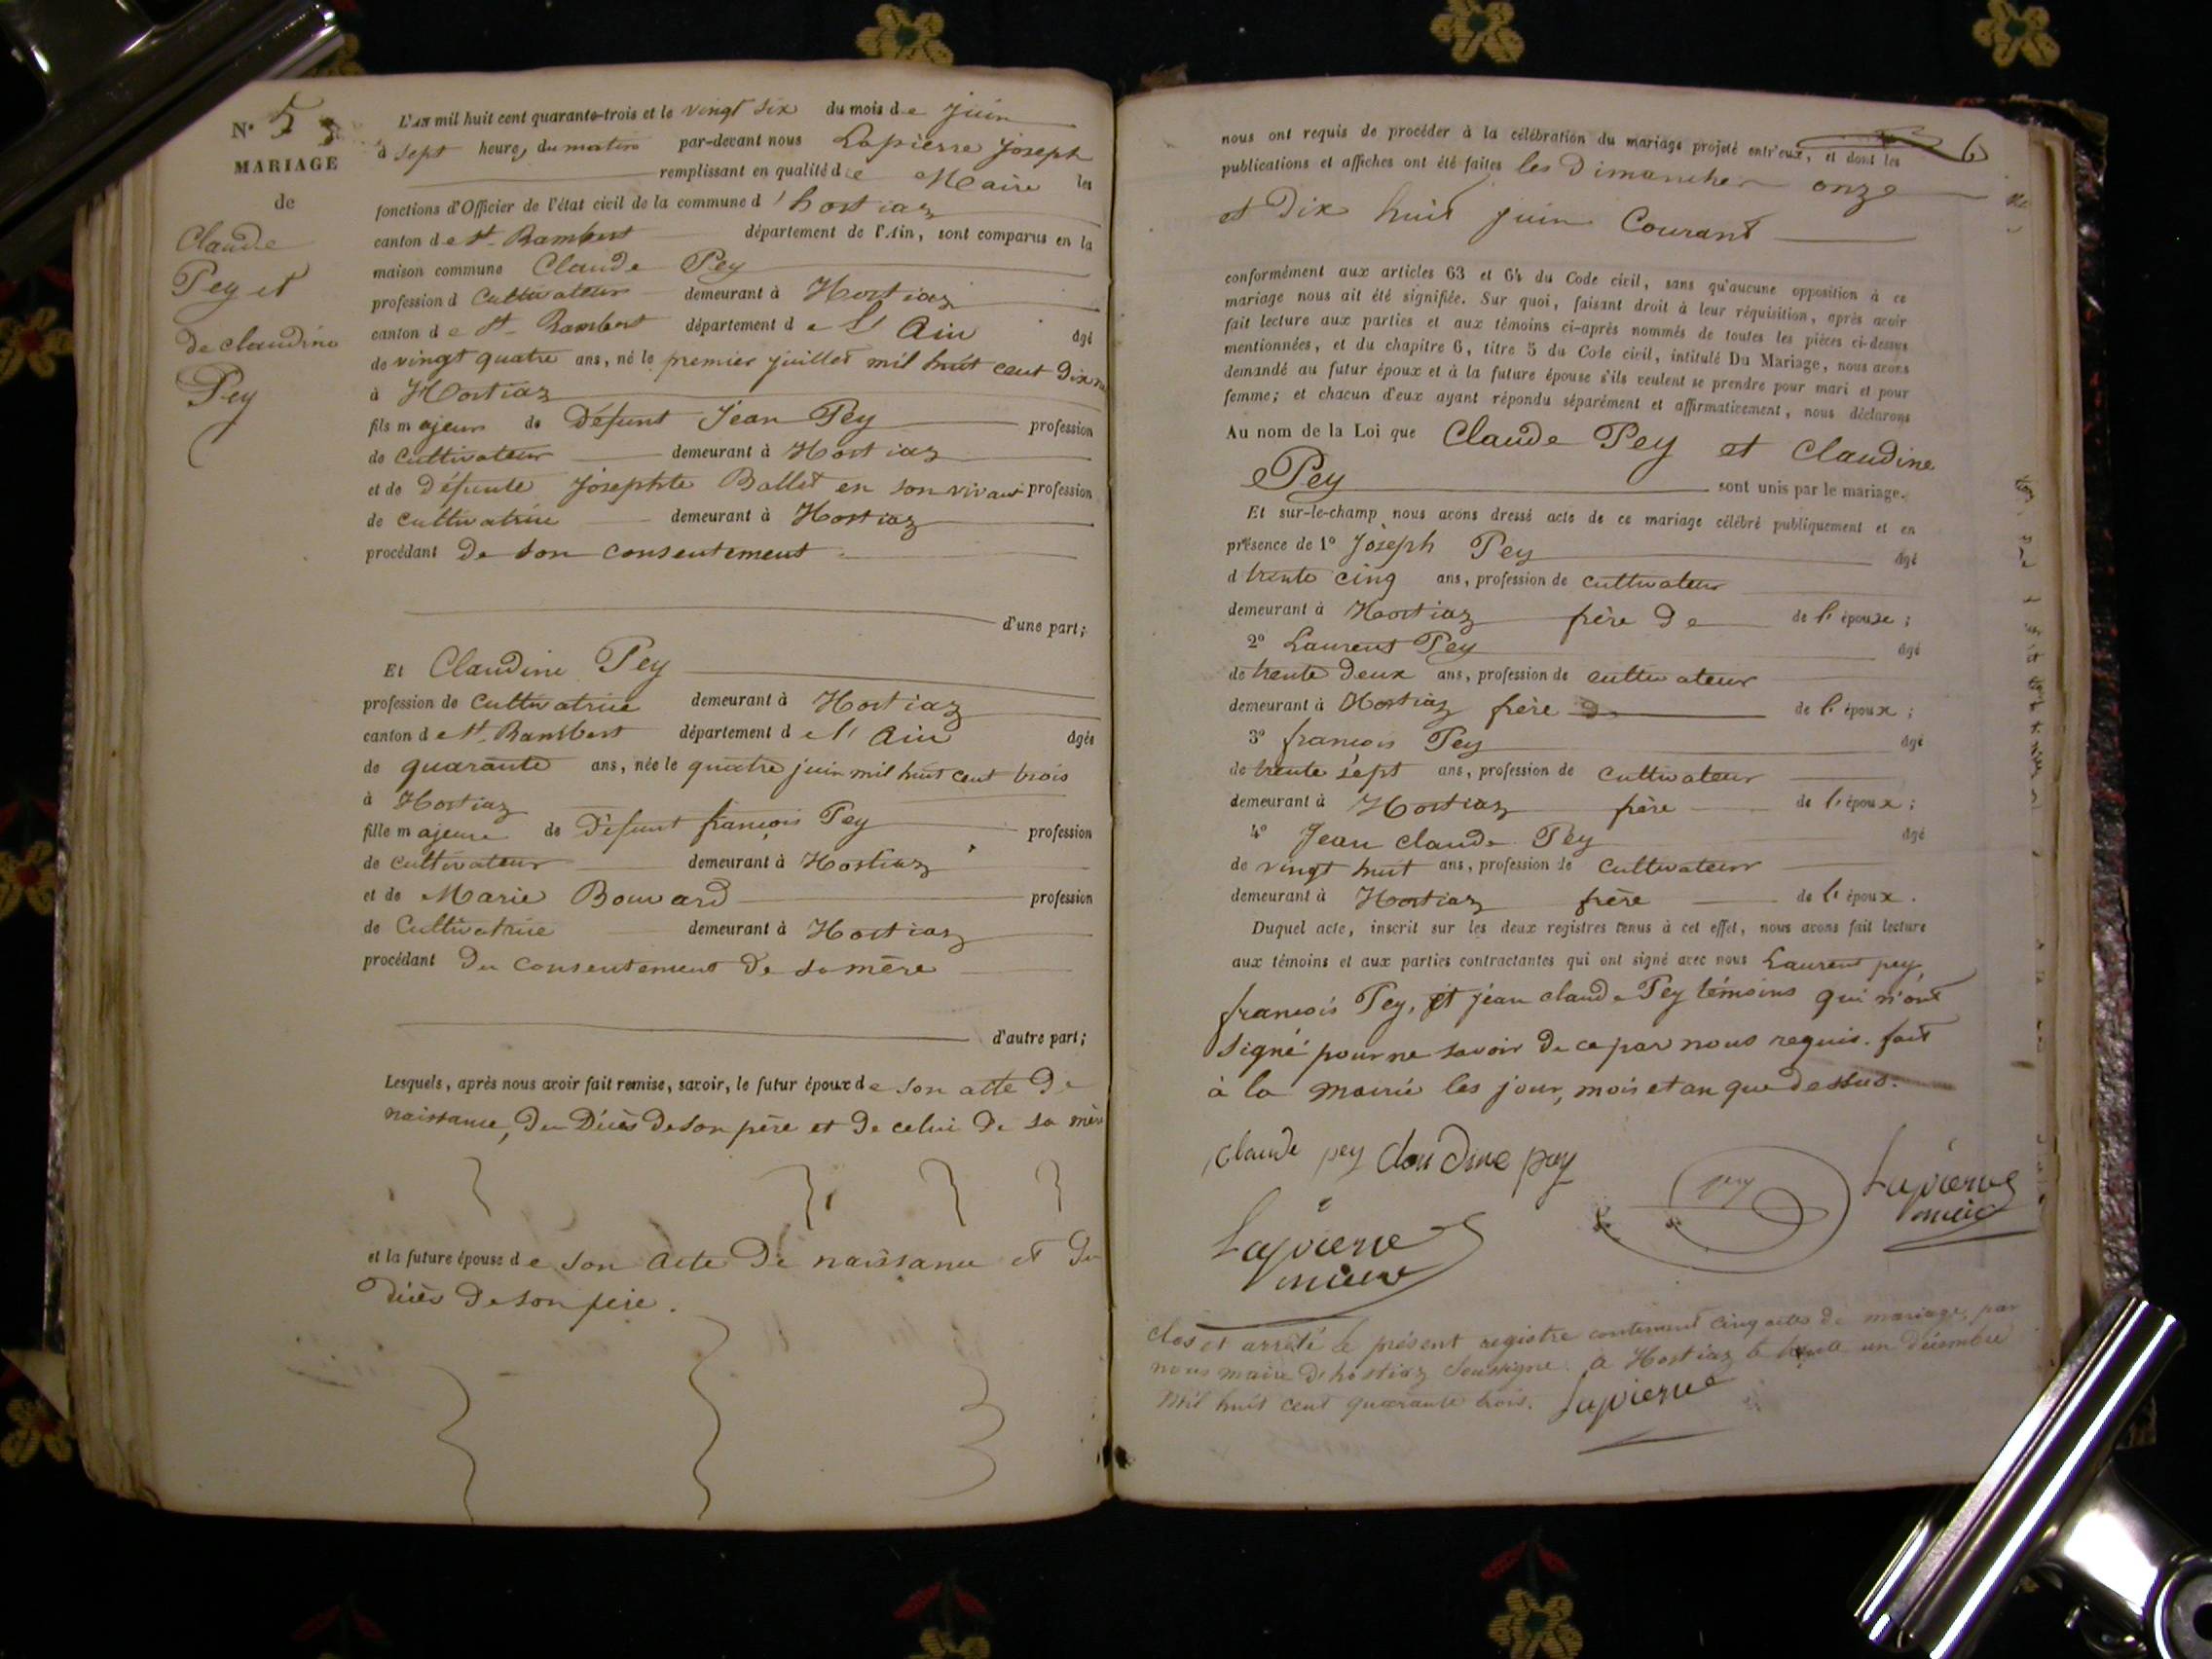 N° 5
MARIAGE
de
Claude
Pey et
de claudine
Pey
L'AN mil huit cent quarante-trois et le vingt six du mois de juin
à sept heures du matin par-devant nous Lapierre Joseph
remplissant en qualité de Maire les
fonctions d'Officier de l'état civil de la commune d'hostiaz
canton de St. Rambert département de l'Ain, sont comparus en la
maison commune Claude Pey
profession d Cultivateur demeurant à Hostiaz
canton de St. Rambert département de l'Ain âgé
de vingt quatre ans, né le premier juillet mil huit cent dix
à Hostiaz
fils majeur de Défunt Jean Pey profession
de cultivateur demeurant à Hostiaz
et de Défunte Josephte Ballet en son vivant profession
de cultivatrice demeurant à Hostiaz
procédant de son consentement
d'une part;
Et Claudine Pey
profession de cultivatrice demeurant à Hostiaz
canton de St. Rambert département de l'Ain âgée
de quarante ans, née le quatre juin mil huit cent trois
à Hostiaz
fille majeure de Défunt françois Pey profession
de cultivateur demeurant à Hostiaz
et de Marie Bouvard profession
de Cultivatrice demeurant à Hostiaz
procédant du consentement de sa mère
d'autre part;
Lesquels, après nous avoir fait remise, savoir, le futur époux de son acte de
naissance, du Décès de son père et de celui de sa mère
et la future épouse de son acte de naissance et du
décès de son père.
6
nous ont requis de procéder à la célébration du mariage projeté entr'eux, et dont les
publications et affiches ont été faites les Dimanches onze
et Dix huit juin Courant
conformément aux articles 63 et 64 du Code civil, sans qu'aucune opposition à ce
mariage nous ait été signifiée. Sur quoi, faisant droit à leur réquisition, après avoir
fait lecture aux parties et aux témoins ci-après nommés de toutes les pièces ci-dessus
mentionnées, et du chapitre 6, titre 5 du Code civil, intitulé Du Mariage, nous avons
demandé au futur époux et à la future épouse s'ils veulent se prendre pour mari et pour
femme; et chacun d'eux ayant répondu séparément et affirmativement, nous déclarons
Au nom de la Loi que Claude Pey et Claudine
Pey sont unis par le mariage.
Et sur-le-champ nous avons dressé acte de ce mariage célébré publiquement et en
présence de 1° Joseph Pey âgé
d trente cinq ans, profession de cultivateur
demeurant à Hostiaz frère de de l'épouse;
2° Laurent Pey âgé
de trente deux ans, profession de cultivateur
demeurant à Hostiaz frère de l'époux;
3° françois Pey âgé
de trente sept ans, profession de cultivateur
demeurant à Hostiaz frère de l'époux;
4° Jean claude Pey âgé
de vingt huit ans, profession de cultivateur
demeurant à Hostiaz frère de l'époux.
Duquel acte, inscrit sur les deux registres tenus à cet effet, nous avons fait lecture
aux témoins et aux parties contractantes qui ont signé avec nous Laurent pey,
françois Pey, et jean claude Pey témoins qui n'ont
signé pour ne savoir de ce par nous requis. fait
à la mairie les jour, mois et an que dessus.
Claude pey Cloudine pey
pey
Lapierre
maire
Lapierre
maire
Clos et arrêté le présent registre contenant cinq actes de mariage, par
nous maire d'hostiaz soussigné. A Hostiaz le trente un Décembre
Mil huit cent quarante trois. Lapierre